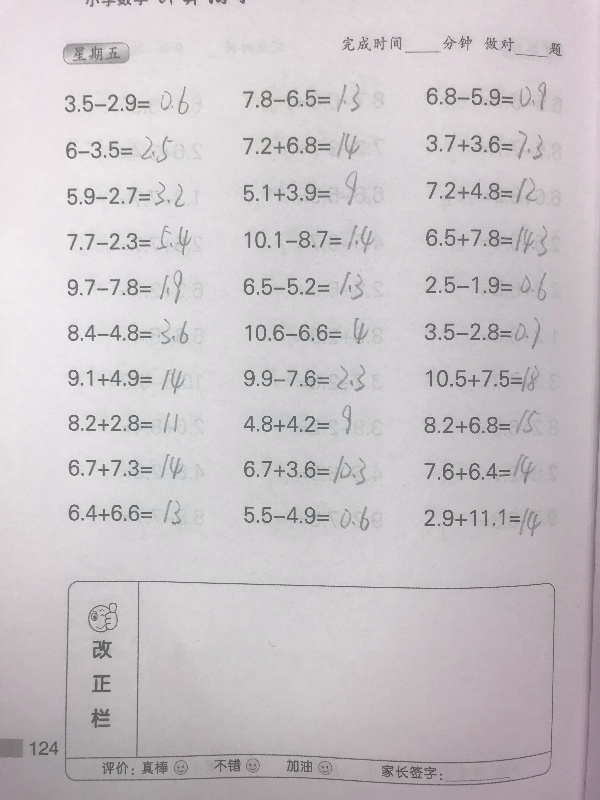 星期五
完成时间____分钟 做对____题
3.5−2.9=0.6 7.8−6.5=1.3 6.8−5.9=0.9
6−3.5=2.5 7.2+6.8=14 3.7+3.6=7.3
5.9−2.7=3.2 5.1+3.9=9 7.2+4.8=12
7.7−2.3=5.4 10.1−8.7=1.4 6.5+7.8=14.3
9.7−7.8=1.9 6.5−5.2=1.3 2.5−1.9=0.6
8.4−4.8=3.6 10.6−6.6=4 3.5−2.8=0.7
9.1+4.9=14 9.9−7.6=2.3 10.5+7.5=18
8.2+2.8=11 4.8+4.2=9 8.2+6.8=15
6.7+7.3=14 6.7+3.6=10.3 7.6+6.4=14
6.4+6.6=13 5.5−4.9=0.6 2.9+11.1=14
改正栏
124
评价：真棒 不错 加油 家长签字：